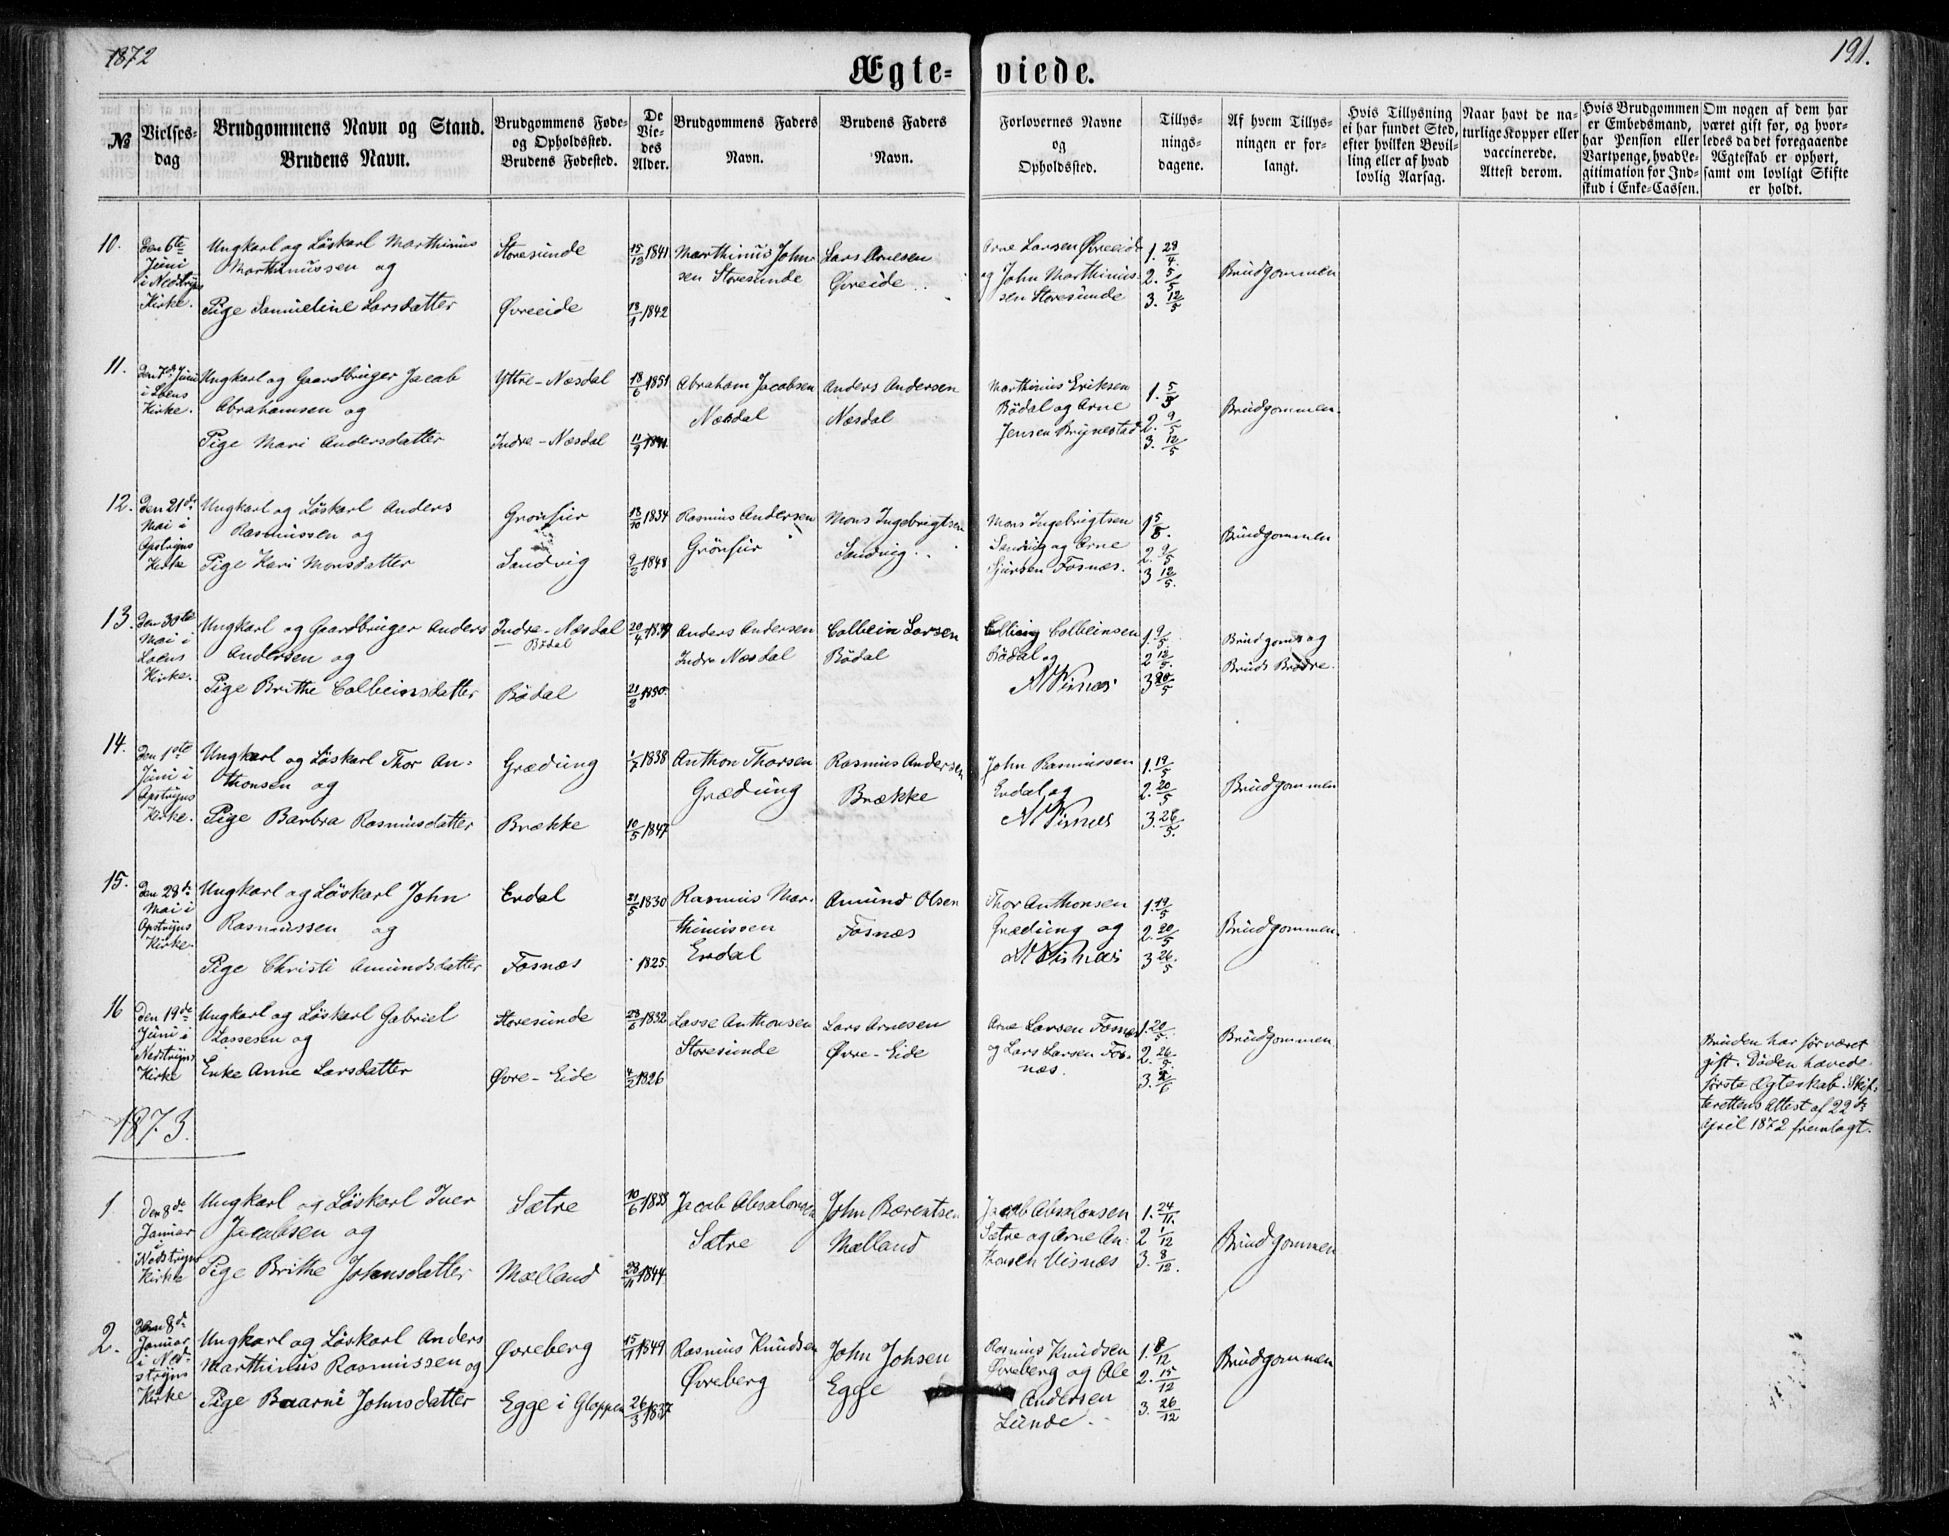 1872
191.
Ægte- viede.
№
Vielses-
dag
Brudgommens Navn og Stand.
Brudens Navn.
Brudgommens Føde-
og Opholdssted.
Brudens Fødested.
De
Vie-
des
Alder.
Brudgommens Faders
Navn.
Brudens Faders
Navn.
Forlovernes Navne
og
Opholdssted.
Tillys-
nings-
dagene.
Af hvem Tillys-
ningen er for-
langt.
Hvis Tillysning
ei har fundet Sted,
efter hvilken Bevil-
ling eller af hvad
lovlig Aarsag.
Naar havt de na-
turlige Kopper eller
vaccinerede.
Attest derom.
Hvis Brudgommen
er Embedsmand,
har Pension eller
Vartpenge, hvad Le-
gitimation for Ind-
skud i Enke-Cassen.
Om nogen af dem har
været gift før, og hvor-
ledes da det foregaaende
Ægteskab er ophørt,
samt om lovligt Skifte
er holdt.
10.
Den 6te
Juni
i Nedstryns
Kirke.
Ungkarl og Löskarl Marthinus
Marthinussen og
Pige Samueline Larsdatter
Storesunde
Øvreeide
15/12 1841
18/1 1842
Marthinus John-
sen Storesunde
Lars Arnesen
Øvreide
Arne Larsen Øvreeide
og John Marthinus-
sen Storesunde
1. 28/4
2. 5/5
3. 12/5
Brudgommen
11.
Den 7de Juni
i Loens
Kirke.
Ungkarl og Gaardbruger Jacob
Abrahamsen og
Pige Mari Andersdatter
Yttre-Næsdal
Indre-Næsdal
18/6 1851
Abraham Jacobsen
Næsdal
Anders Andersen
Næsdal
Marthinus Eriksen
Bödal og Arne
Jensen Brynestad
1. 5/5
2. 9/5
3. 12/5
Brudgommen.
12.
Den 21de
Mai i
Opstryns
Kirke
Ungkarl og Löskarl Anders
Rasmussen og
Pige Kari Monsdatter
Grönfur
Sandvig
13/10 1834
9/2 1848
Rasmus Andersen
Grönfur
Mons Ingebrigtsen
Sandvig
Mons Ingebrigtsen
Sandvig og Arne
Sjursen Fosnæs.
1 5/5.
2. 9/5
3 12/5.
Brudgommen
13.
Den 30te
Mai i
Loens
Kirke.
Ungkarl og Gaardbruger Anders
Andersen og
Pige Brithe Colbeinsdatter
Indre-Næsdal
Bödal
Bödal
21/2 1850.
Anders Andersen
Indre Næsdal
Colbein Larsen
Bödal
Colbeinsen
Bödal og
N Visnæs
1. 9/5
2 12/5.
3 20/5
Brudgoms og
Bruds Brødre.
14.
Den 1ste
Juni i
Opstryns
Kirke.
Ungkarl og Löskarl Thor An-
thonsen og
Pige Barbra Rasmusdatter
Grædung
Brække
1/7 1838
10/5 1847
Anthon Thorsen
Grædung
Rasmus Andersen
Brække
John Rasmussen
Erdal og
N Visnæs
1. 19/5
2. 20/5
3. 26/5.
Brudgommen
15.
Den 28de
Mai i
Opstryns
Kirke
Ungkarl og Löskarl John
Rasmussen og
Pige Christi Amundsdatter
Erdal
Fosnæs
21/5 1830
1825.
Rasmus Mar-
thinussen
Erdal
Amund Olsen
Fosnæs
Thor Anthonsen
Grædung og
N Visnæs
1. 19/5
2. 20/5
3 26/5.
Brudgommen.
16
Den 19de
Juni i
Nedstryns
Kirke
Ungkarl og Löskarl Gabriel
Lassesen og
Enke Anne Larsdatter
Storesunde
Øvre-Eide
28/6 1832
4/2 1826
Lasse Anthonsen
Storesunde
Lars Arnesen
Øvre-Eide
Arne Larsen Fosnæs
og Lars Larsen Fos-
næs.
1. 20/5.
2. 26/5.
3. 2/6
Brudgommen
Bruden har før været
gift. Döden hævede
første Ægteskab. Skif-
terettens Attest af 22de
April 1872 fremlagt.
1873.
1.
Den 8de
Januar
i
Nedstryns
Kirke
Ungkarl og Löskarl Iver
Jacobsen og
Pige Brithe Johnsdatter
Sætre
Mælland
28/11 1844
Jacob Absalonsen
Sætre
John Bærentsen
Mælland
Jacob Absalonsen
Sætre og Arne An-
thonsen Visnæs
1. 24/11.
2 1/12
3. 8/12.
Brudgommen
2.
Den 8de
Januar
i Ned-
stryns
Kirke
Ungkarl og Löskarl Anders
Marthinus Rasmussen og
Pige Baarni Johnsdatter
Øvreberg
Egge i Gloppen
15/11 1849
26/3 1837
Rasmus Knudsen
Øvreberg
John Johsen
Egge
Rasmus Knudsen
Øvreberg og Ole
Andersen
Lunde
1. 8/12
2. 15/12
3. 26/12
Brudgommen